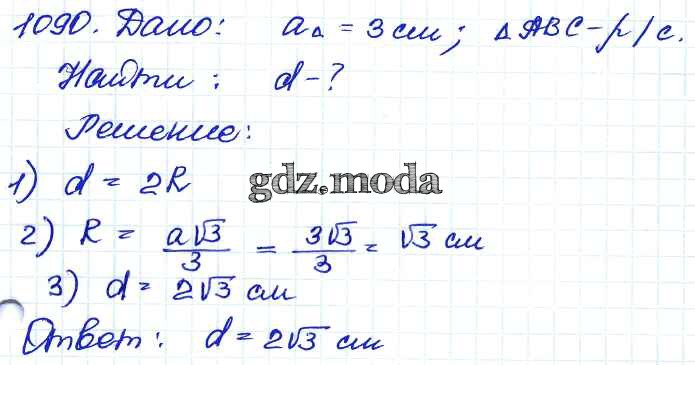 1090. Дано: a△ = 3 см; △ABC – р/с.
Найти: d – ?
Решение:
1) d = 2R
gdz.moda
2) R = a√3/3 = 3√3/3 = √3 см
3) d = 2√3 см
Ответ: d = 2√3 см